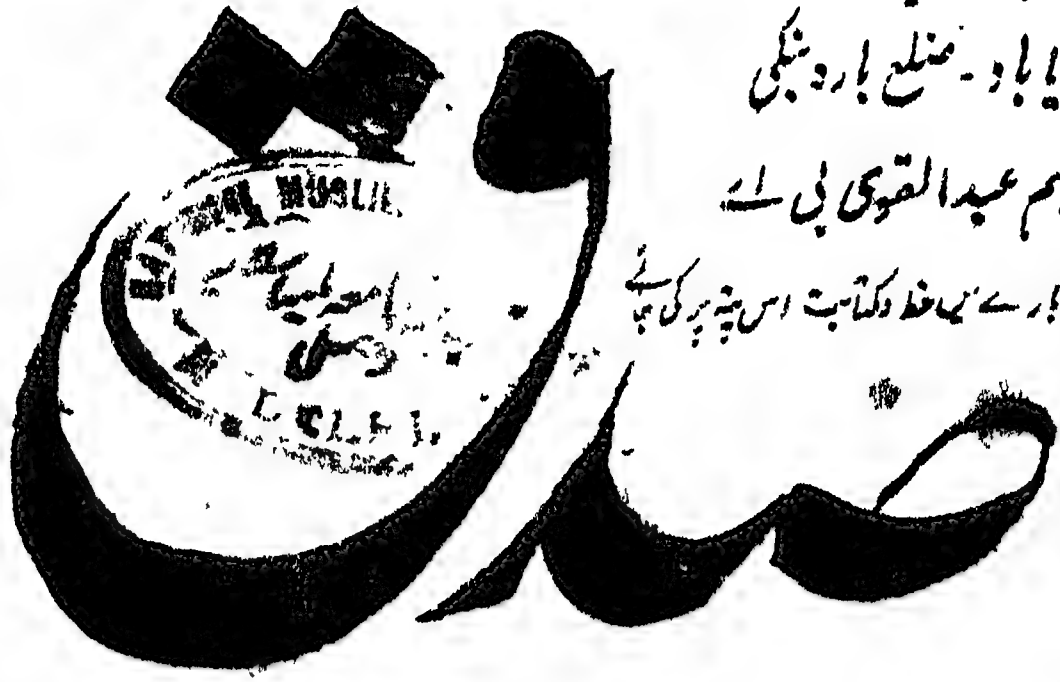 یاباد۔ ضلع بارہ بنکی
عبدالقوی بی اے
ارے میں خط وکتابت اس پتہ پر کی جائے
صدق
MUSLIM
جامعہ ملیہ
دہلی
DELHI.